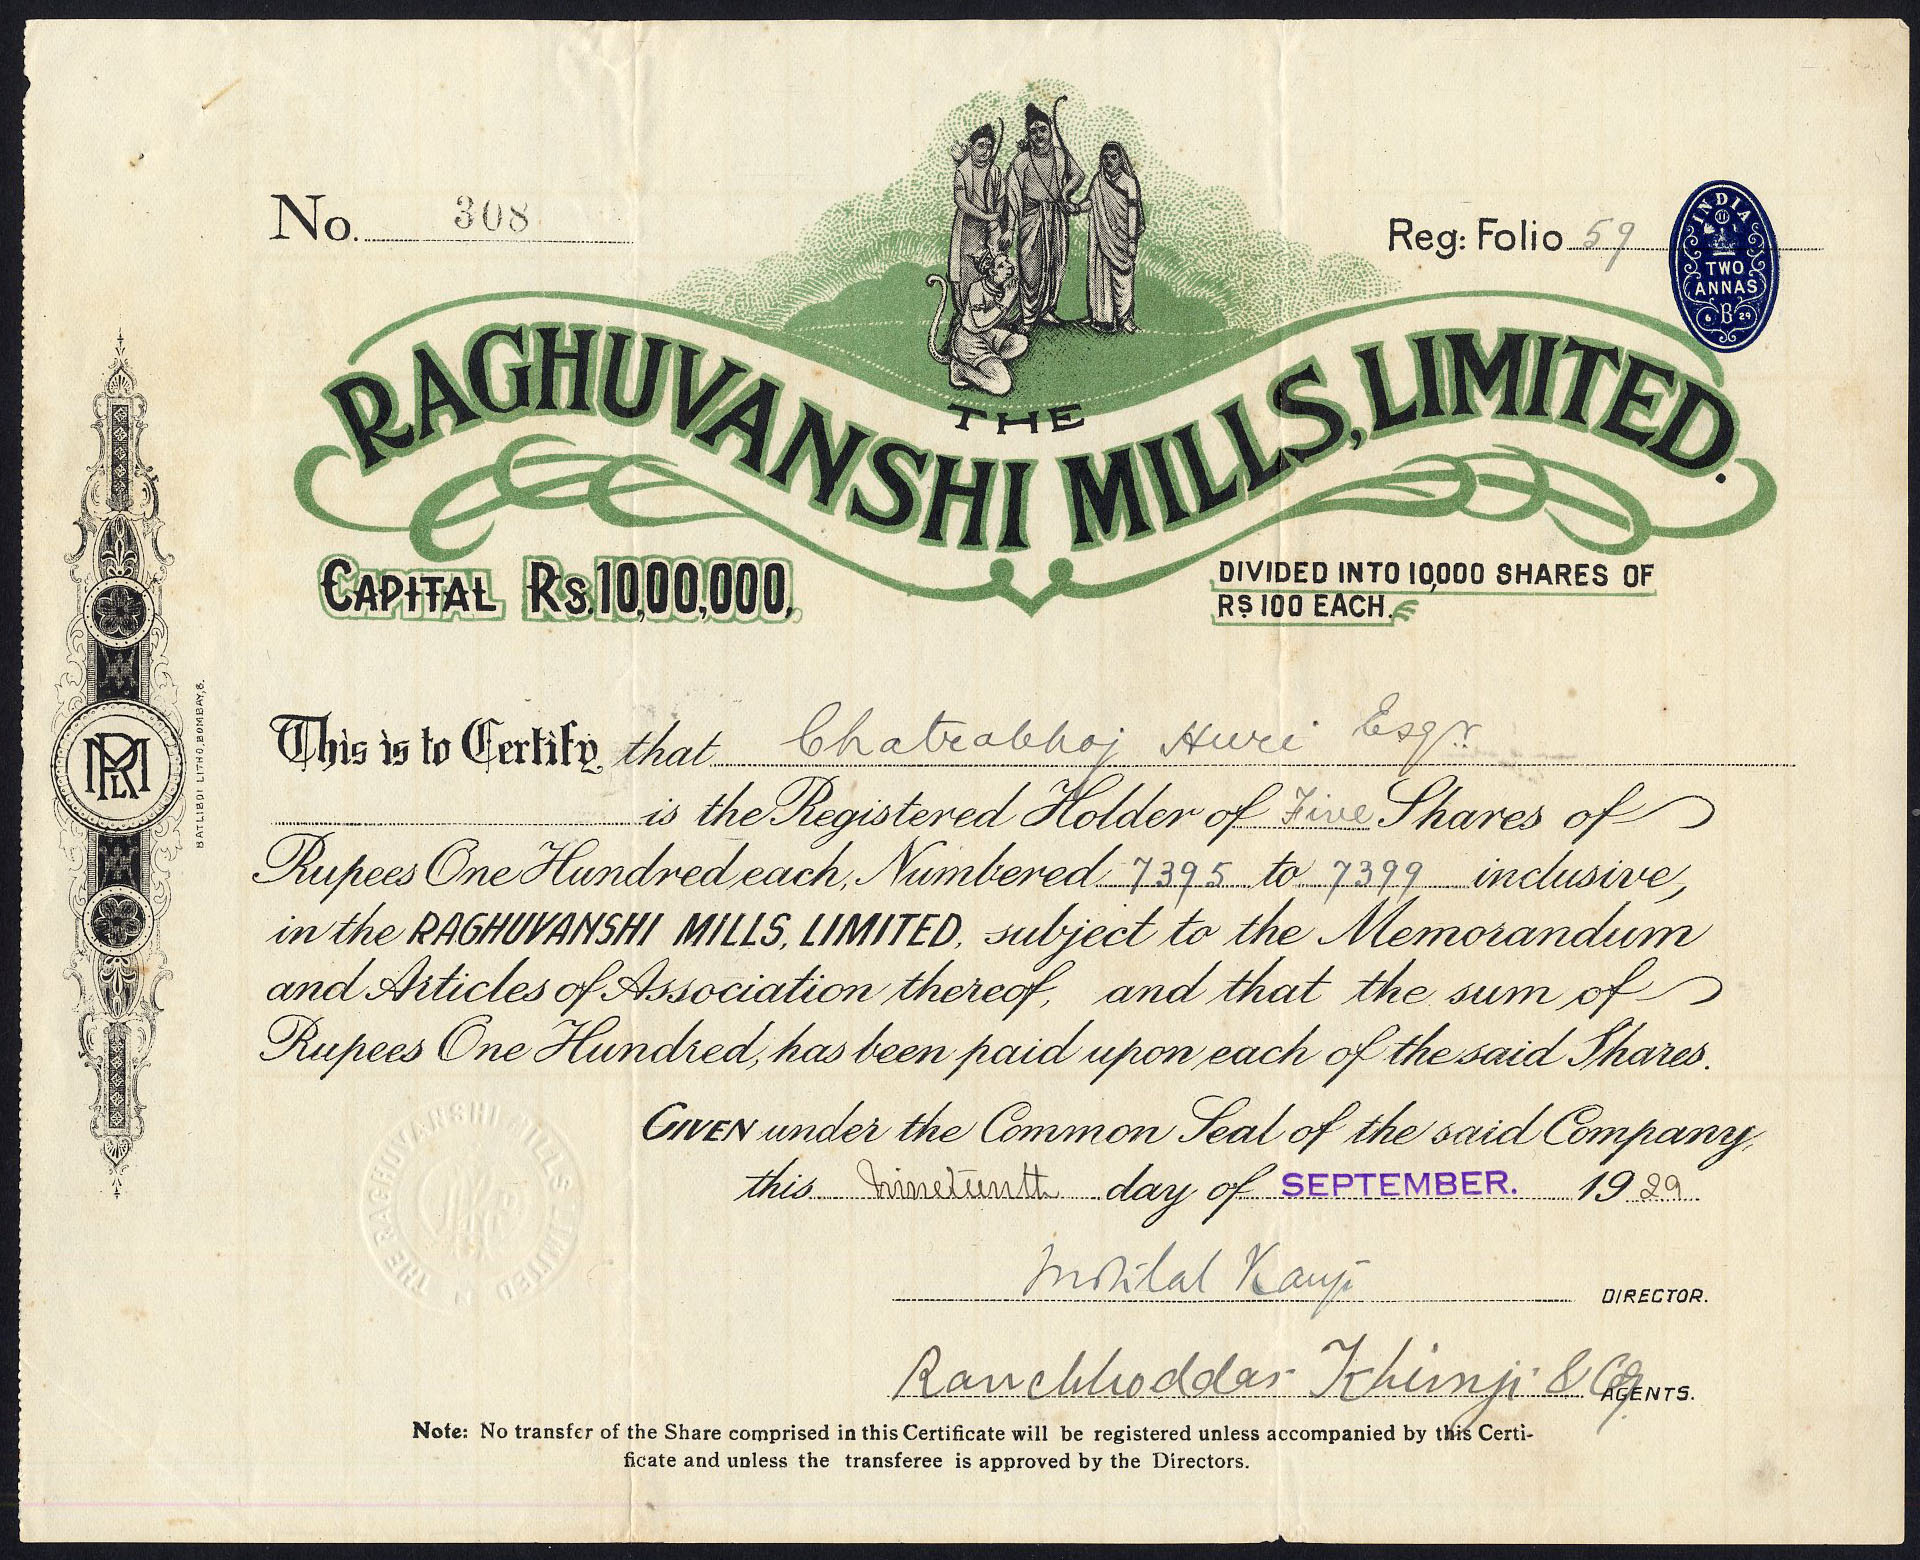 No. 308
Reg: Folio 59
INDIA
11
TWO
ANNAS
6 B 29
THE
RAGHUVANSHI MILLS, LIMITED.
CAPITAL RS. 10,00,000,
DIVIDED INTO 10,000 SHARES OF
RS 100 EACH.
This is to Certify that Chatrabhoj Hurei Esqr.
is the Registered Holder of Five Shares of
Rupees One Hundred each, Numbered 7395 to 7399 inclusive,
in the RAGHUVANSHI MILLS, LIMITED, subject to the Memorandum
and Articles of Association thereof, and that the sum of
Rupees One Hundred, has been paid upon each of the said Shares.
GIVEN under the Common Seal of the said Company,
this nineteenth day of SEPTEMBER. 1929
Motilal Kanji
DIRECTOR.
Ranchhoddas Khimji & Co
AGENTS.
Note: No transfer of the Share comprised in this Certificate will be registered unless accompanied by this Certi-
ficate and unless the transferee is approved by the Directors.
THE RAGHUVANSHI MILLS LIMITED
RML
BATLIBOI LITHO, BOMBAY, 8.